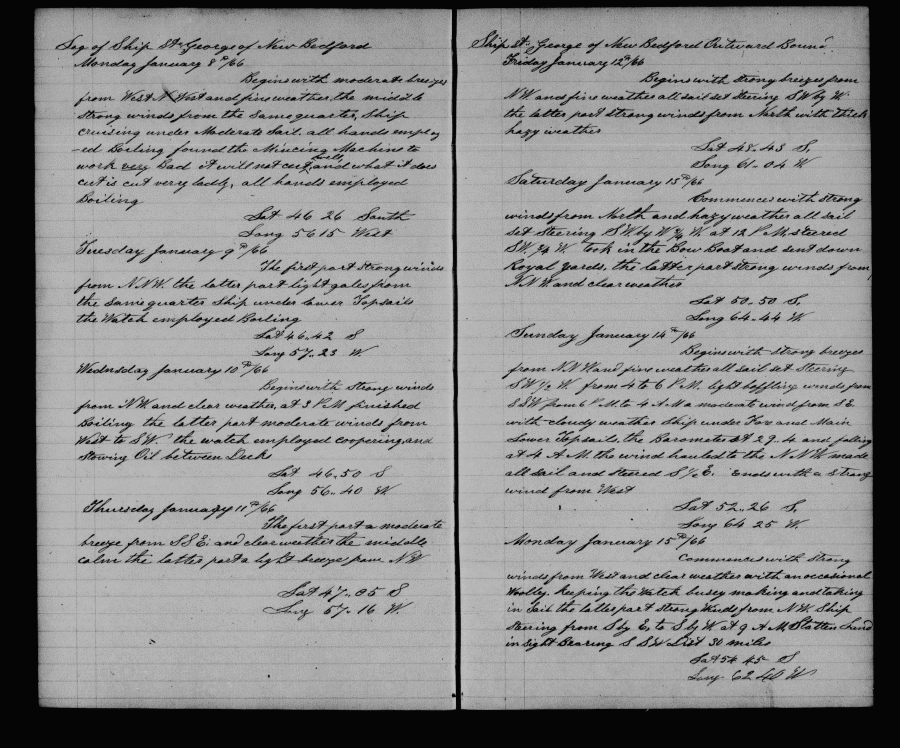 Log of Ship St. George of New Bedford
Monday January 8th/66
Begins with moderate breezes
from West N West and fine weather, the middle
strong winds from the same quarter, Ship
cruising under Moderate Sail. all hands employ
-ed Boiling found the Mincing Machine to
work very bad it will not cut well and what it does
cut is cut very badly, all hands employed
Boiling
Lat 46 26 South
Long 56 15 West
Tuesday January 9th/66
The first part strong winds
from N.N.W. the latter part light gales from
the same quarter Ship under lower Topsails
the Watch employed Boiling
Lat 46..42 S
Long 57..23 W
Wednesday January 10th/66
Begins with strong winds
from N.W. and clear weather, at 3 P.M finished
Boiling the latter part moderate winds from
West to S.W. the watch employed coopering and
Stowing Oil between Decks
Lat 46..50 S
Long 56..40 W
Thursday January 11th/66
The first part a moderate
breeze from S.S.E. and clear weather the middle
calm the latter part a light breeze from N.W
Lat 47..35 S
Long 57..16 W.
Ship St. George of New Bedford Outward Bound
Friday January 12th/66
Begins with strong breezes from
N.W. and fine weather all sail set steering S.W by W.
the latter part strong winds from North with thick
hazy weather
Lat 48..43 S,
Long 61..04 W
Saturday January 13th/66
Commences with strong
winds from North and hazy weather all sail
set Steering S.W by W ¾ W. at 12 P.M steered
S.W. ¾ W took in the Bow Boat and sent down
Royal yards, the latter part strong winds from
N.N.W. and clear weather
Lat 50..50 S,
Long 64..44 W
Sunday January 14th/66
Begins with strong breezes
from N.N.W. and fine weather all sail set Steering
S.W ½ W. from 4 to 6 P.M. light baffling winds from
S.S.W from 6 P.M. to 4 A.M a moderate wind from S.E.
with cloudy weather Ship under Fore and Main
Lower Topsails, the Barometer at 29..4 and falling
at 4 A.M. the wind hauled to the N.N.W. made
all sail and steered S ½ E. Ends with a strong
wind from West
Lat 52..26 S,
Long 64 25 W.
Monday January 15th/66
Commences with strong
winds from West and clear weather with an occasional
Woolley. keeping the Watch busey making and taking
in Sail the latter part strong Winds from N.W. Ship
Steering from S by E, to S by W at 9 A.M, Statten Land
in sight Bearing S S W Dist 30 miles
Lat 54 45 S
Long 62 40 W